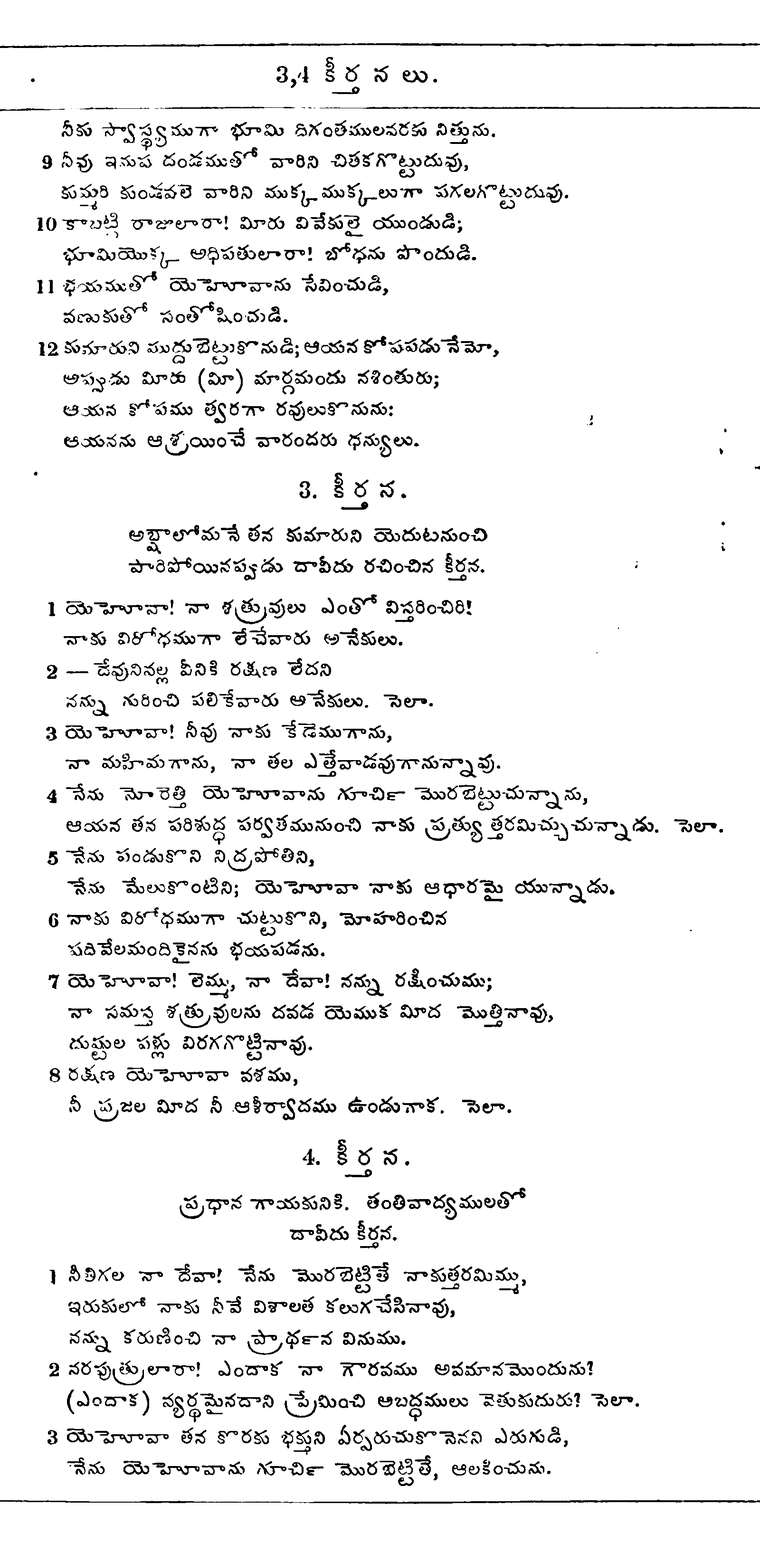 3,4 కీర్తనలు.
నీకు స్వాస్థ్యముగా భూమి దిగంతములవరకు నిత్తును.
9 నీవు ఇనుప దండముతో వారిని చితకగొట్టుదువు,
కుమ్మరి కుండవలె వారిని ముక్కముక్కలుగా పగలగొట్టుదువు.
10 కాబట్టి రాజులారా! మీరు వివేకులై యుండుడి;
భూమియొక్క అధిపతులారా! బోధను పొందుడి.
11 భయముతో యెహోవాను సేవించుడి,
వణుకుతో సంతోషించుడి.
12 కుమారుని ముద్దుబెట్టుకొనుడి; ఆయన కోపపడునేమో,
అప్పుడు మీరు (మీ) మార్గమందు నశింతురు;
ఆయన కోపము త్వరగా రవులుకొనును:
ఆయనను ఆశ్రయించే వారందరు ధన్యులు.
3. కీర్తన.
అబ్షాలోమనే తన కుమారుని యెదుటనుంచి
పారిపోయినప్వడు దావీదు రచించిన కీర్తన.
1 యెహోవా! నా శత్రువులు ఎంతో విస్తరించిరి!
నాకు విరోధముగా లేచేవారు అనేకులు.
2 — దేవునివల్ల వీనికి రక్షణ లేదని
నన్ను గురించి పలికేవారు అనేకులు. సెలా.
3 యెహోవా! నీవు నాకు కేడెముగాను,
నా మహిమగాను, నా తల ఎత్తేవాడవుగానున్నావు.
4 నేను నోరెత్తి యెహోవాను గూర్చి మొరబెట్టుచున్నాను,
ఆయన తన పరిశుద్ధ పర్వతమునుంచి నాకు ప్రత్యుత్తరమిచ్చుచున్నాడు. సెలా.
5 నేను పండుకొని నిద్రపోతిని,
నేను మేలుకొంటిని; యెహోవా నాకు ఆధారమై యున్నాడు.
6 నాకు విరోధముగా చుట్టుకొని, మోహరించిన
పదివేలమందికైనను భయపడను.
7 యెహోవా! లెమ్ము, నా దేవా! నన్ను రక్షించుము;
నా సమస్త శత్రువులను దవడ యెముక మీద మొత్తినావు,
దుష్టుల పళ్లు విరగగొట్టినావు.
8 రక్షణ యెహోవా వశము,
నీ ప్రజల మీద నీ ఆశీర్వాదము ఉండుగాక. సెలా.
4. కీర్తన.
ప్రధాన గాయకునికి. తంతివాద్యములతో
దావీదు కీర్తన.
1 నీతిగల నా దేవా! నేను మొరబెట్టితే నాకుత్తరమిమ్ము,
ఇరుకులో నాకు నీవే విశాలత కలుగచేసినావు,
నన్ను కరుణించి నా ప్రార్థన వినుము.
2 నరపుత్రులారా! ఎందాక నా గౌరవము అవమానమొందును?
(ఎందాక) వ్యర్థమైనదాని ప్రేమించి అబద్ధములు వెతుకుదురు? సెలా.
3 యెహోవా తన కొరకు భక్తుని వీర్పరుచుకొనెనని ఎరుగుడి,
నేను యెహోవాను గూర్చి మొరబెట్టితే, ఆలకించును.